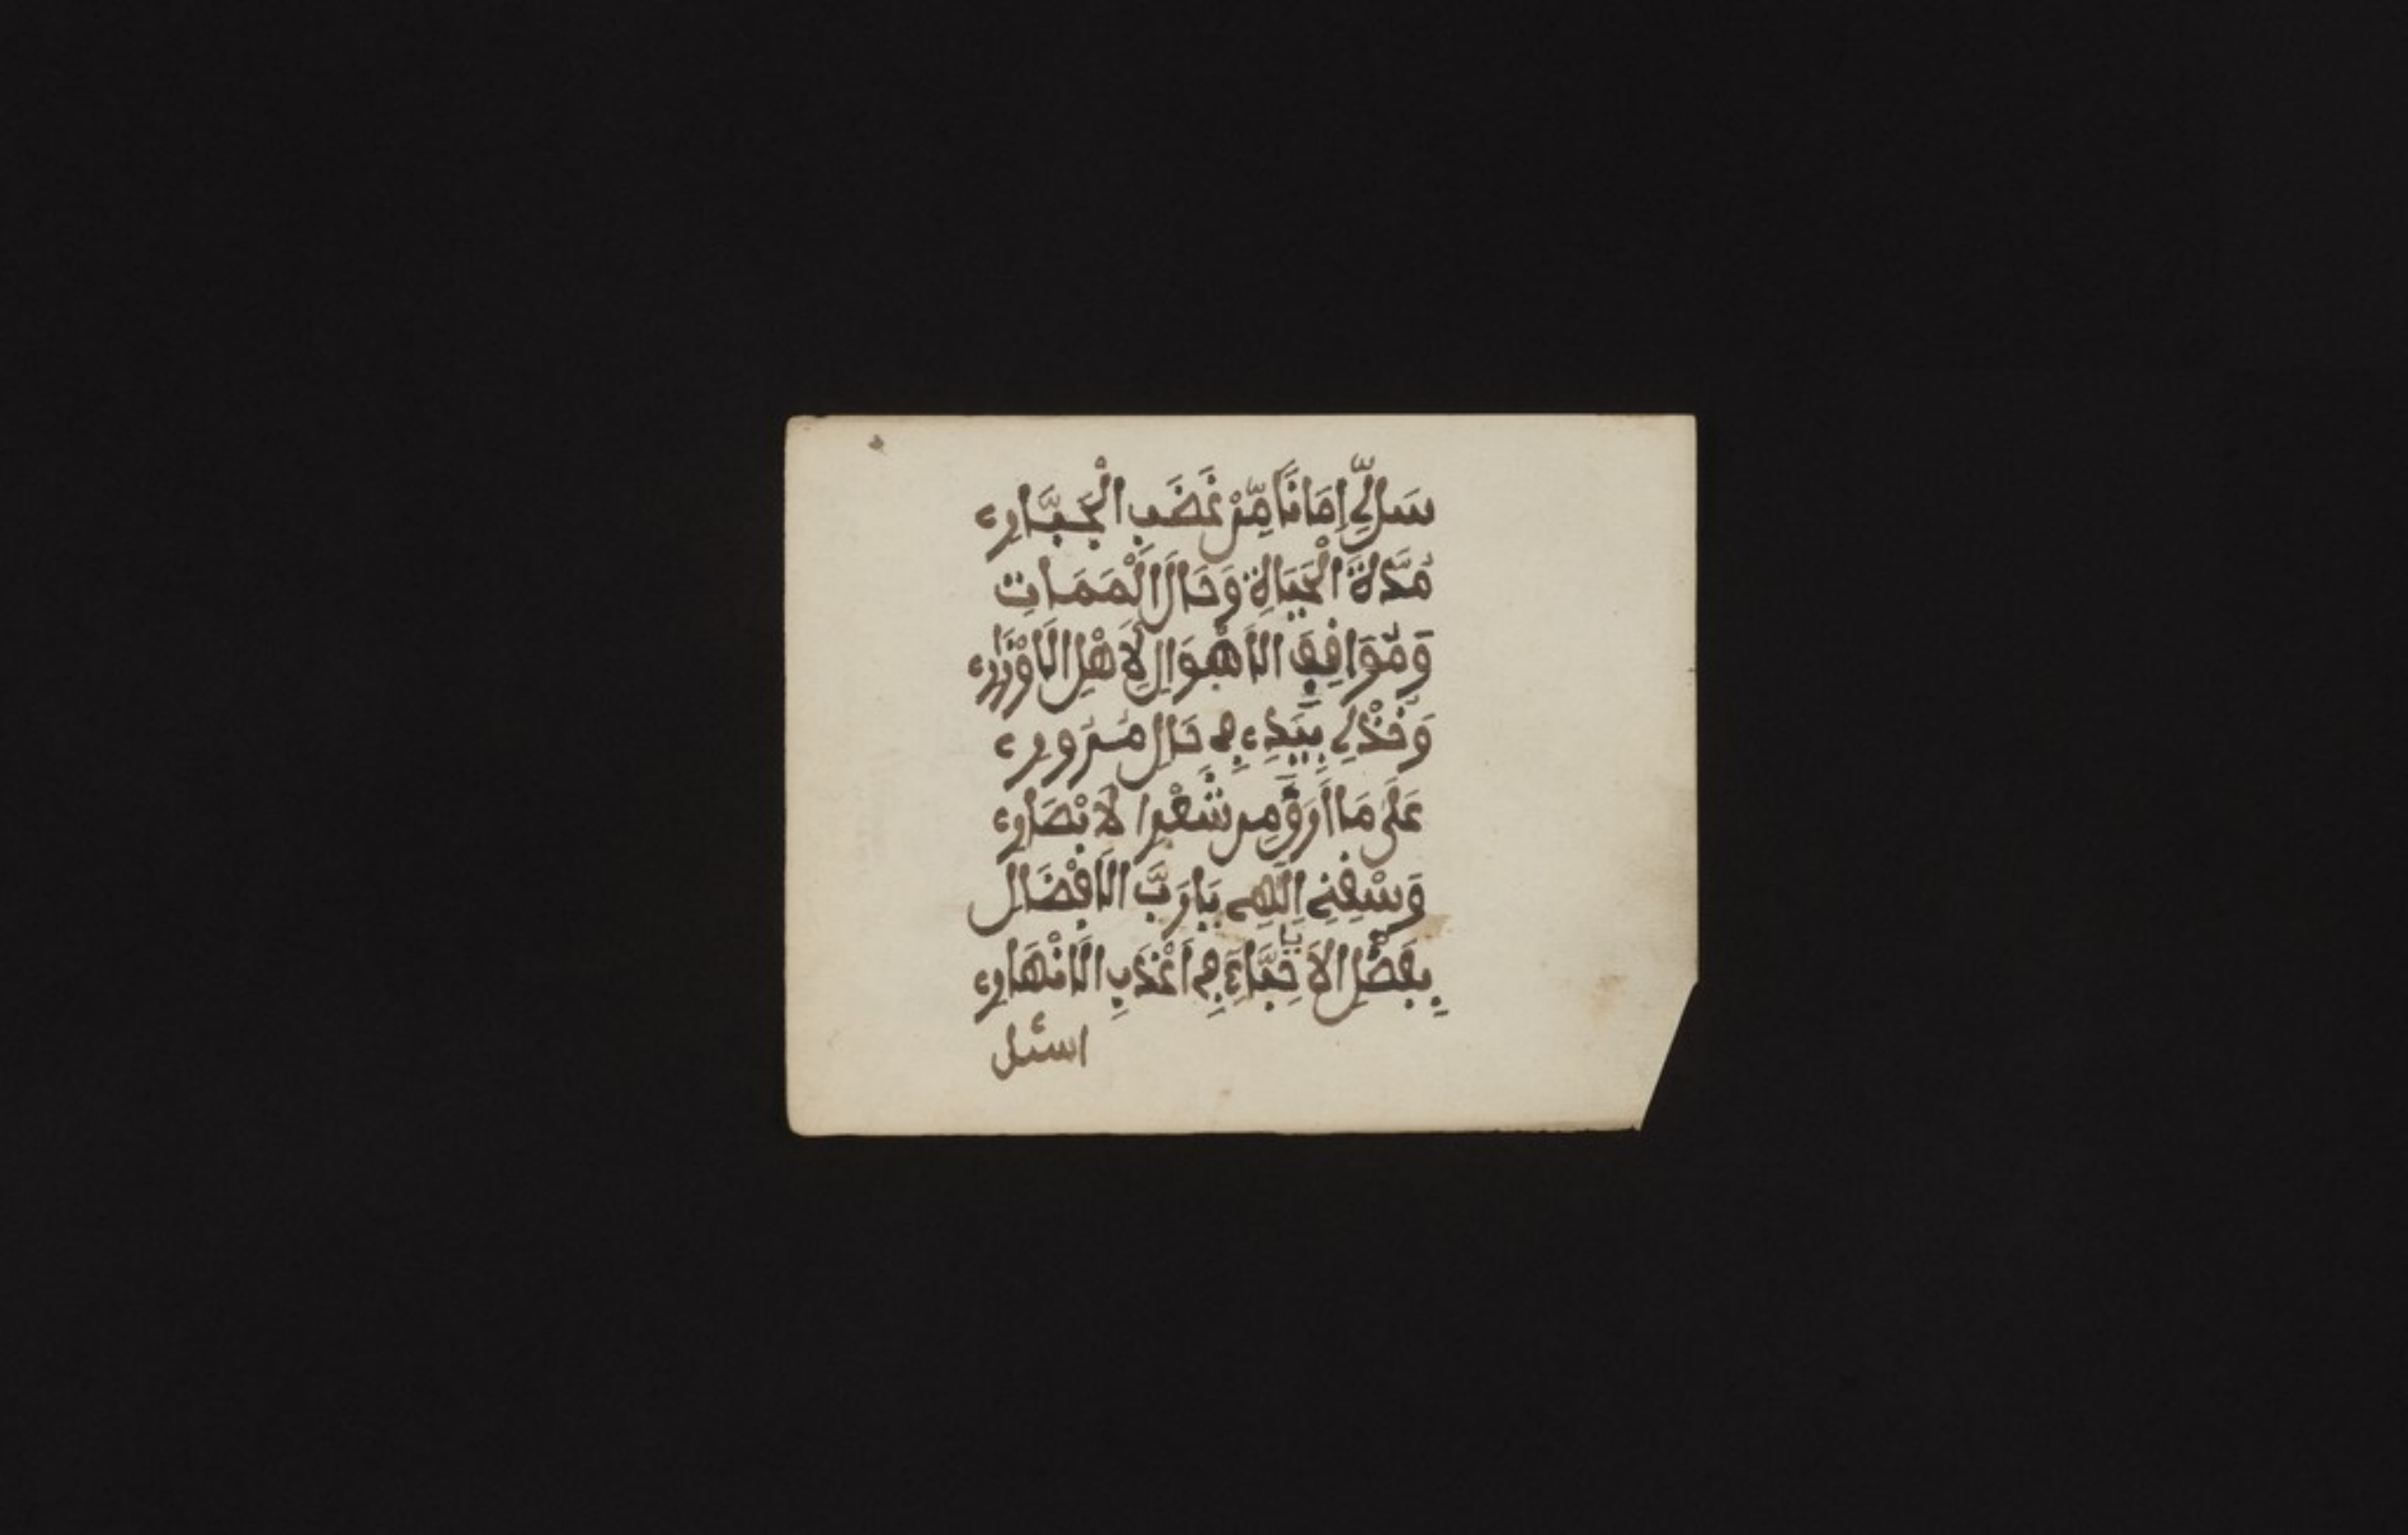 سَل لِّي اِمَانًا مِّنْ غَضَبِ الْجَبَّارِ
مُدَّةَ الْحَيَاةِ وَحَالَ الْمَمَاتِ
وَمُوَافِقَ الَاهْوَالِ لِاَهْلِ الَاوْزَارِ
وَخُذْلِي بِيَدِي فِي حَالِ مُرُورِي
عَلَى مَا اَرَقَّ مِن شَعْرِ لَابْصَارِ
وَسْقِنِي اِلَهِي يَارَبَّ الَافْضَالِ
بِفَضْلِ الَاحِبَّاءِ فِي اَعْذَبِ الَانْهَارِ
اسئل